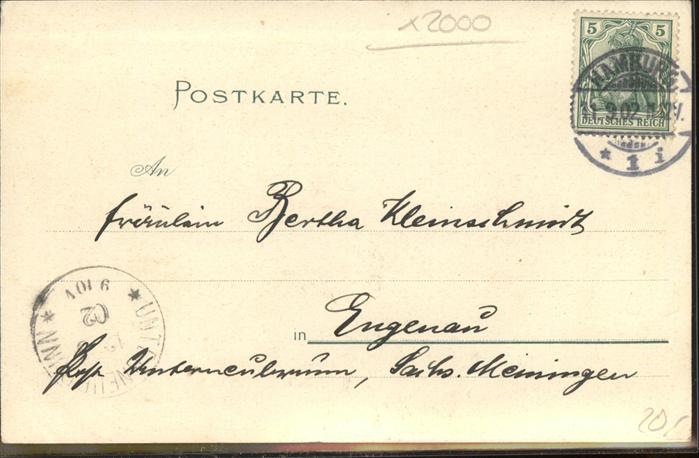 x2000
5 5
HAMBURG
9.02
DEUTSCHES REICH
* 1 i
POSTKARTE.
An
Fräulein Bertha Kleinschmidt
9 10V
02
in Engenau
Post Unterneubrunn, Sachs. Meiningen
20,